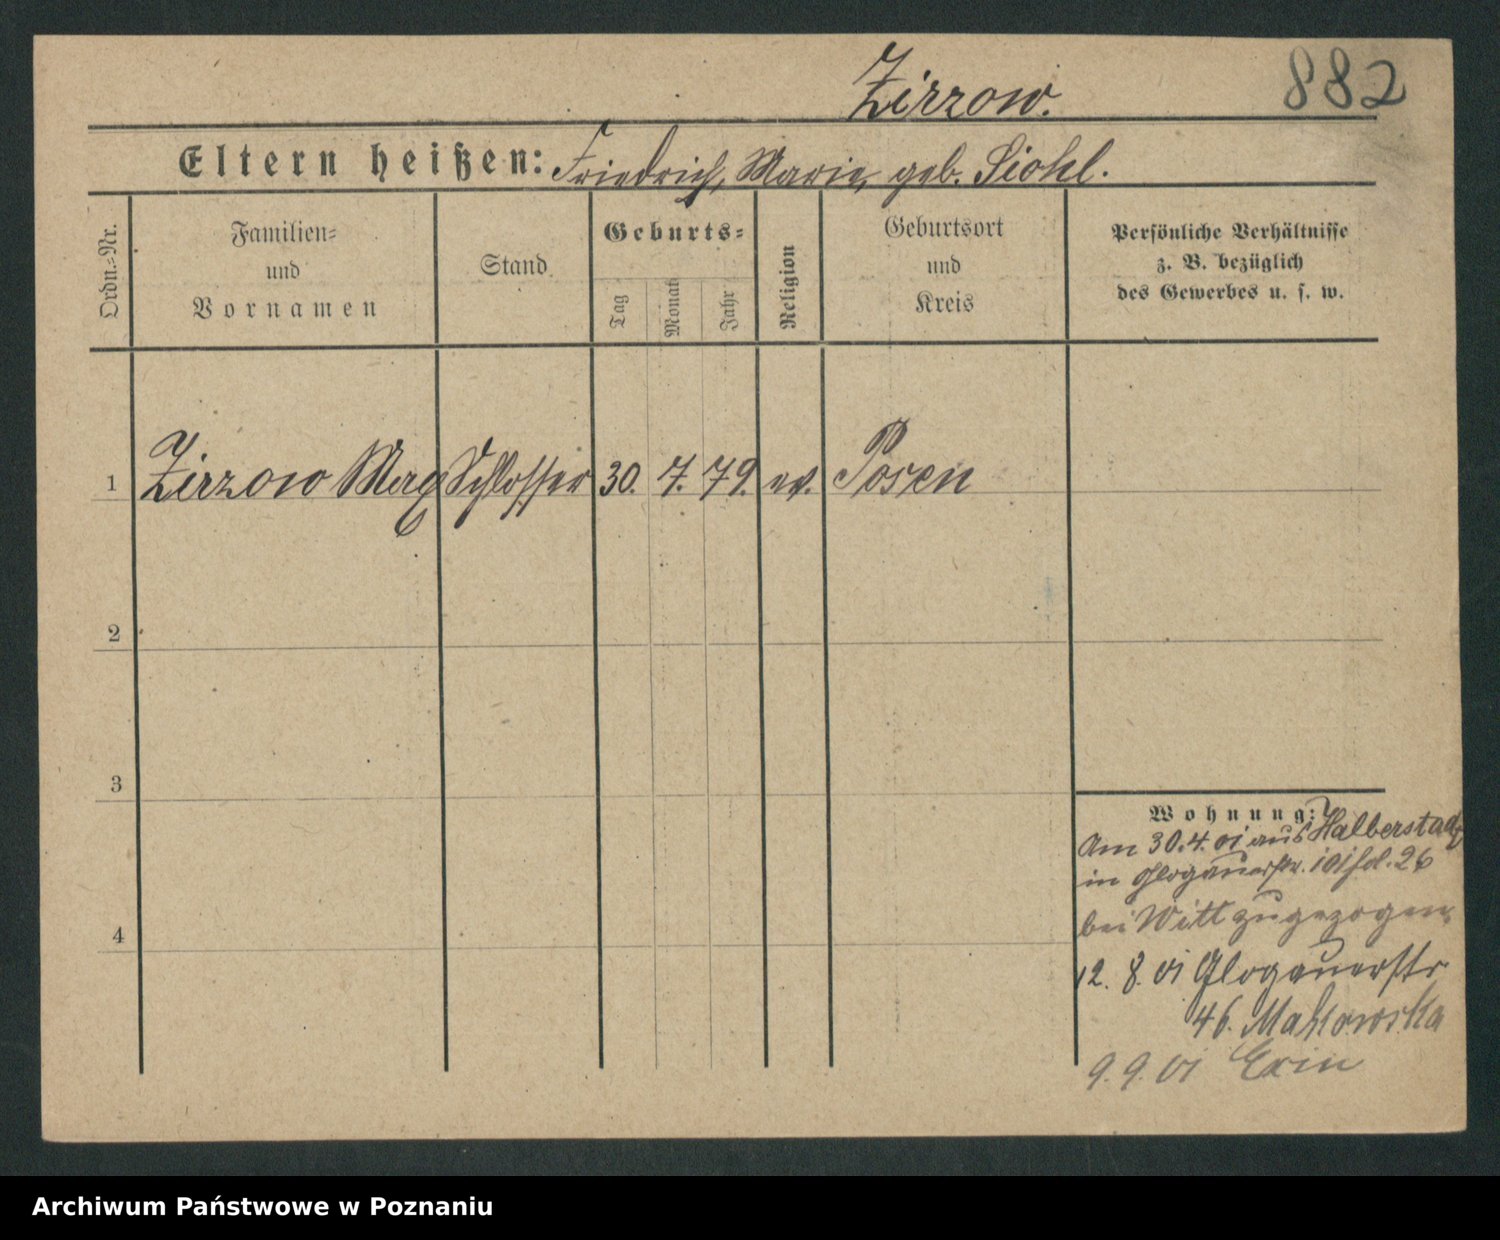 Zirzow.
882
Eltern heißen: Friedrich, Marie, geb. Siohl.
Ordn.-Nr.
Familien-
und
Vornamen
Stand
Geburts-
Tag
Monat
Jahr
Religion
Geburtsort
und
Kreis
Persönliche Verhältnisse
z. B. bezüglich
des Gewerbes u. s. w.
1 Zirzow Max Schlosser 30. 7. 79. ev. Posen
2
3
4
Wohnung:
Am 30.4.01 aus Halberstadt
in Glogauerstr. 101 26
bei Witt zugezogen.
12. 8. 01 Glogauerstr
46.
9.9.01 Exin
Archiwum Państwowe w Poznaniu